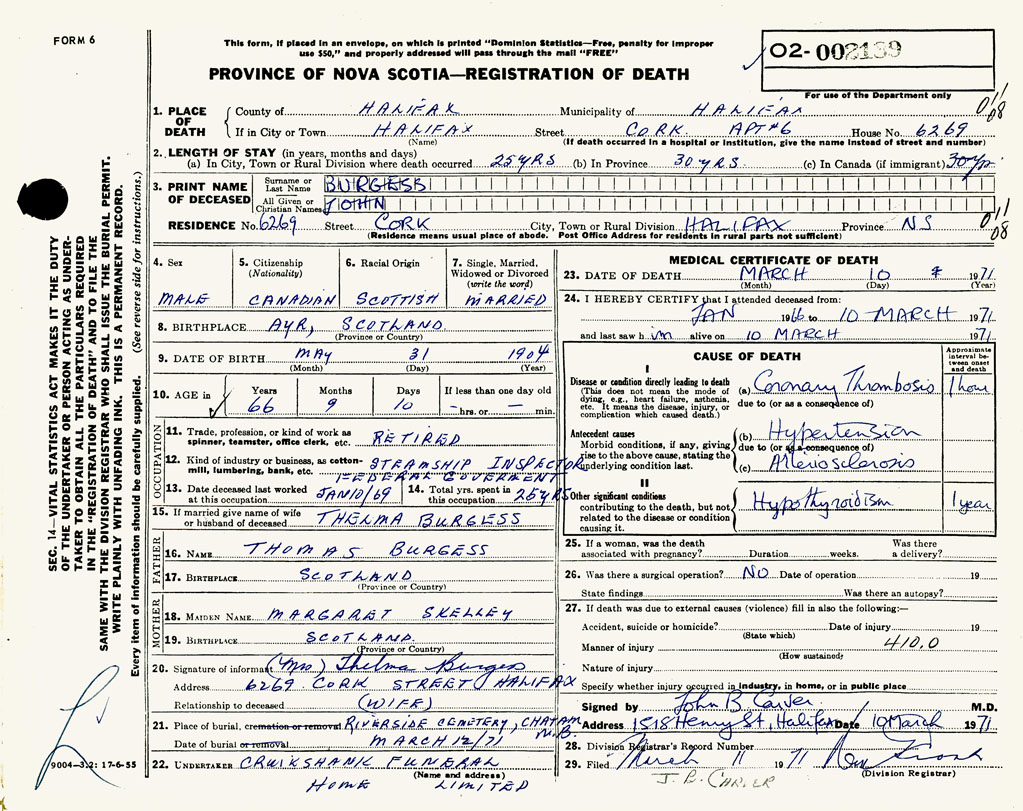 FORM 6
This form, if placed in an envelope, on which is printed "Dominion Statistics—Free, penalty for improper
use $50," and properly addressed will pass through the mail "FREE"
O2-002139
PROVINCE OF NOVA SCOTIA—REGISTRATION OF DEATH
For use of the Department only
1. PLACE OF DEATH
County of HALIFAX Municipality of HALIFAX
If in City or Town HALIFAX Street CORK APT #6 House No. 6269
(Name) (If death occurred in a hospital or institution, give the name instead of street and number)
2. LENGTH OF STAY (in years, months and days)
(a) In City, Town or Rural Division where death occurred 25 YRS (b) In Province 30 YRS. (c) In Canada (if immigrant) 30 yr.
3. PRINT NAME OF DECEASED
Surname or Last Name BURGESS
All Given or Christian Names JOHN
RESIDENCE No. 6269 Street CORK City, Town or Rural Division HALIFAX Province NS
(Residence means usual place of abode. Post Office Address for residents in rural parts not sufficient)
011
08
011
08
SEC. 14—VITAL STATISTICS ACT MAKES IT THE DUTY
OF THE UNDERTAKER OR PERSON ACTING AS UNDER-
TAKER TO OBTAIN ALL THE PARTICULARS REQUIRED
IN THE "REGISTRATION OF DEATH" AND TO FILE THE
SAME WITH THE DIVISION REGISTRAR WHO SHALL ISSUE THE BURIAL PERMIT.
WRITE PLAINLY WITH UNFADING INK. THIS IS A PERMANENT RECORD.
Every item of information should be carefully supplied. (See reverse side for instructions.)
4. Sex
MALE
5. Citizenship
(Nationality)
CANADIAN
6. Racial Origin
SCOTTISH
7. Single, Married,
Widowed or Divorced
(write the word)
MARRIED
8. BIRTHPLACE AYR, SCOTLAND
(Province or Country)
9. DATE OF BIRTH MAY 31 1904
(Month) (Day) (Year)
10. AGE in Years Months Days If less than one day old
66 9 10 — hrs. or — min.
OCCUPATION
11. Trade, profession, or kind of work as
spinner, teamster, office clerk, etc. RETIRED
12. Kind of industry or business, as cotton-
mill, lumbering, bank, etc. STEAMSHIP INSPECTOR
FEDERAL GOVERMENT
13. Date deceased last worked
at this occupation JAN 10/69
14. Total yrs. spent in
this occupation 25 YRS
15. If married give name of wife
or husband of deceased THELMA BURGESS
FATHER
16. NAME THOMAS BURGESS
17. BIRTHPLACE SCOTLAND
(Province or Country)
MOTHER
18. MAIDEN NAME MARGARET SKELLEY
19. BIRTHPLACE SCOTLAND
(Province or Country)
20. Signature of informant (Mrs) Thelma Burgess
Address 6269 CORK STREET HALIFAX
Relationship to deceased (WIFE)
21. Place of burial, cremation or removal RIVERSIDE CEMETERY, CHATAM
N.B.
Date of burial or removal MARCH 12/71
22. UNDERTAKER CRUIKSHANK FUNERAL
(Name and address)
HOME LIMITED
9004—3.2: 17-6-55
MEDICAL CERTIFICATE OF DEATH
23. DATE OF DEATH MARCH 10 1971
(Month) (Day) (Year)
24. I HEREBY CERTIFY that I attended deceased from:
JAN 1966 to 10 MARCH 1971
and last saw him alive on 10 MARCH 1971
CAUSE OF DEATH
Approximate
interval be-
tween onset
and death
I
Disease or condition directly leading to death
(This does not mean the mode of
dying, e.g., heart failure, asthenia,
etc. It means the disease, injury, or
complication which caused death.)
(a) Coronary Thrombosis 1 hour
due to (or as a consequence of)
Antecedent causes
Morbid conditions, if any, giving
rise to the above cause, stating the
underlying condition last.
(b) Hypertension
due to (or as a consequence of)
(c) Arteriosclerosis
II
Other significant conditions
contributing to the death, but not
related to the disease or condition
causing it.
Hypothyroidism 1 year
25. If a woman, was the death Was there
associated with pregnancy? Duration weeks. a delivery?
26. Was there a surgical operation? NO Date of operation 19
State findings Was there an autopsy?
27. If death was due to external causes (violence) fill in also the following:—
Accident, suicide or homicide? Date of injury 19
(State which)
Manner of injury 410.0
(How sustained)
Nature of injury
Specify whether injury occurred in industry, in home, or in public place
Signed by John B Carver M.D.
Address 1518 Henry St, Halifax Date 10 March 1971
28. Division Registrar's Record Number
29. Filed March 11 1971
(Division Registrar)
J. B. CARVER